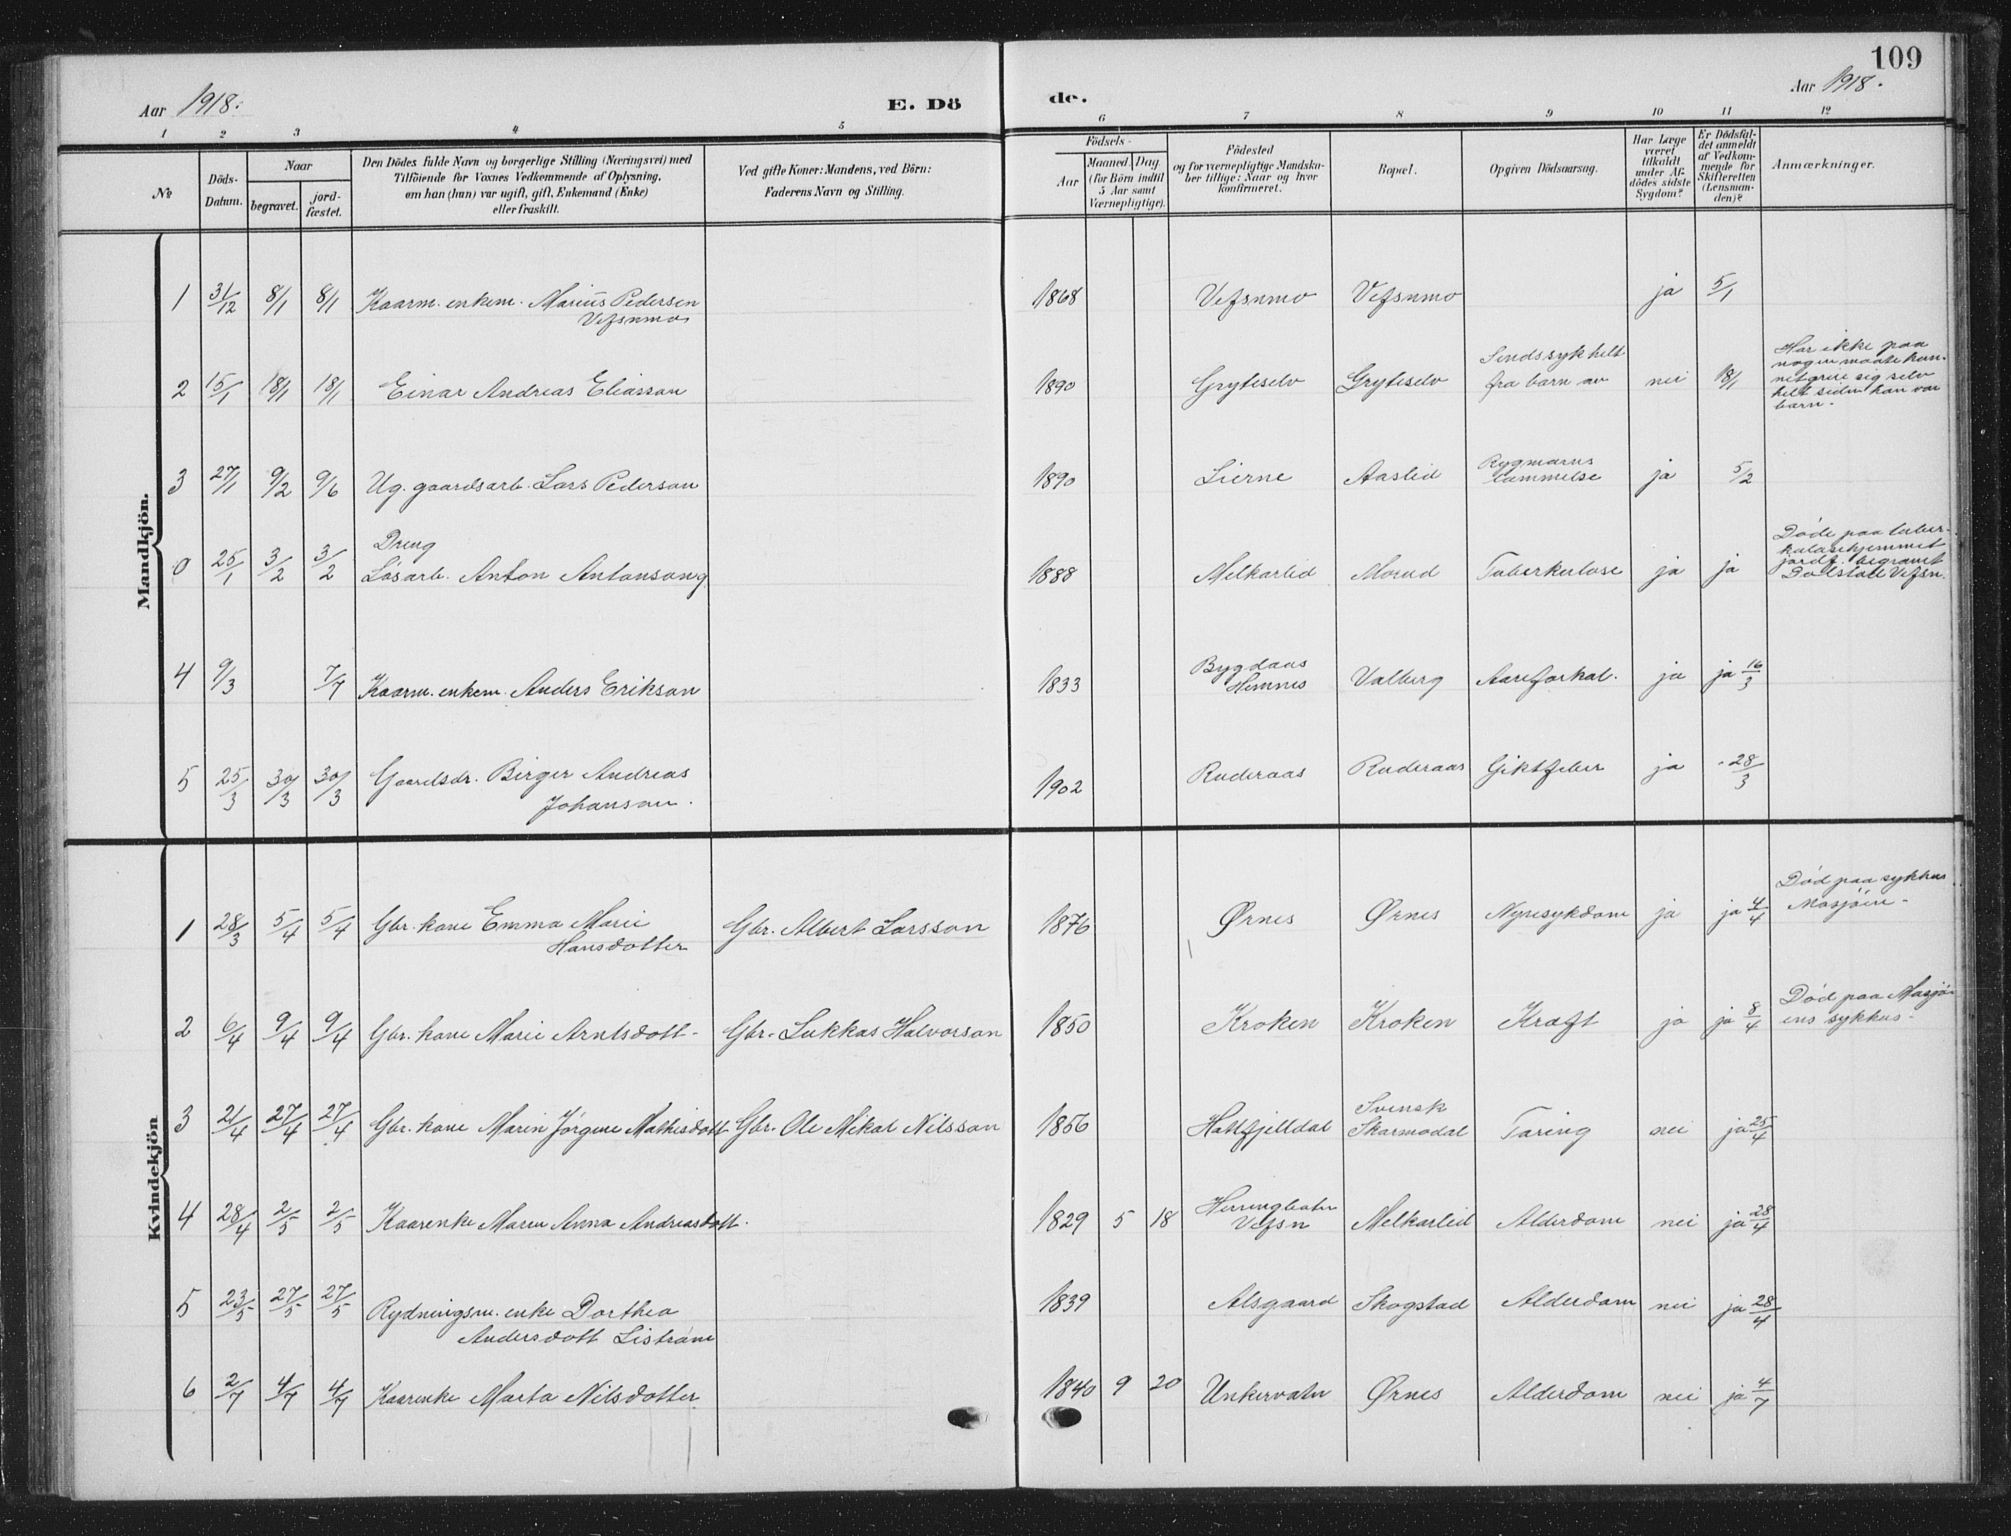 109
Aar 1918.
E. Dö
de.
Aar 1918.
1 2 3 4 5 6 7 8 9 10 11 12
№
Döds-
Datum.
Naar
begravet.
jord-
fæstet.
Den Dödes fulde Navn og borgerlige Stilling (Næringsvei) med
Tilföiende for Voxnes Vedkommende af Oplysning,
om han (hun) var ugift, gift, Enkemand (Enke)
eller fraskilt.
Ved gifte Koner: Mandens, ved Börn:
Faderens Navn og Stilling.
Födsels-
Aar
Maaned. Dag.
(for Börn indtil
5 Aar samt
Værnepligtige).
Födested
og for værnepligtige Mandska-
ber tillige: Naar og hvor
konfirmeret.
Bopæl.
Opgiven Dödsaarsag.
Har Læge
været
tilkaldt
under Af-
dödes sidste
Sygdom?
Er Dödsfal-
det anmeldt
af Vedkom-
mende for
Skifteretten
(Lensman-
den)?
Anmærkninger.
Mandkjön.
1 31/12 8/1 8/1 Kaarm. enkem. Marius Pedersen
Vefsnmo
1868 Vefsnmo Vefsnmo ja 5/1
2 15/1 18/1 18/1 Einar Andreas Eliasson
1890 Gryteselv Gryteselv
Sindssyk helt
fra barn av
nei 18/1
Har ikke paa
nogen maate kun-
net greie sig selv
helt siden han var
barn.
3 27/1 9/2 9/6 Ug. gaardsarb. Lars Pederson
1890 Lierne Aaslid
Rygmarvs
lammelse
ja 5/2
0 25/1 3/2 3/2
Dreng
Løsarb. Anton Antonsong
1888 Melkarlid Morud Tuberkulose ja ja
Døde paa tuber-
kulosehjemmet
jordf. begravet
Dolstad Vefsn.
4 9/3 7/7 Kaarm. enkem. Anders Erikson
1833
Bygdaas
Hemnes
Valberg Aareforkal. ja ja 16/3
5 25/3 30/3 30/3 Gaardsdr. Birger Andreas
Johanson.
1902 Ruderaas Ruderaas Giktfeber ja - 28/3
Kvindekjön
1 28/3 5/4 5/4 Gbr. kone Emma Marie
Hansdotter
Gbr. Albert Larsson 1876 Ørnes Ørnes Nyresykdom ja ja 4/4
Død paa sykhus
Mosjøen.
2 6/4 9/4 9/4 Gbr. kone Marie Arntsdott- Gbr. Lukkas Halvorson 1850 Kroken Kroken Kræft ja ja 8/4
Død paa Mosjø-
ens sykhus.
3 21/4 27/4 27/4 Gbr. kone Maren Jørgine Mathisdott Gbr. Ole Mikal Nilsson 1856 Hatfjelldal
Svensk
Skarmodal
Tæring nei ja 25/4
4 28/4 2/5 2/5 Kaarenke Maren Anna Andreasdott. 1829 5 18
Herringbotn
Vefsn
Melkarlid Alderdom nei ja 28/4
5 23/5 27/5 27/5 Rydningsm. enke Dorthea
Andersdott Liström
1839 Alsgaard Skogstad Alderdom nei ja 28/4
6 2/7 4/7 4/7 Kaarenke Marta Nilsdotter 1840 9 20 Unkervatn Ørnes Alderdom nei ja 4/7